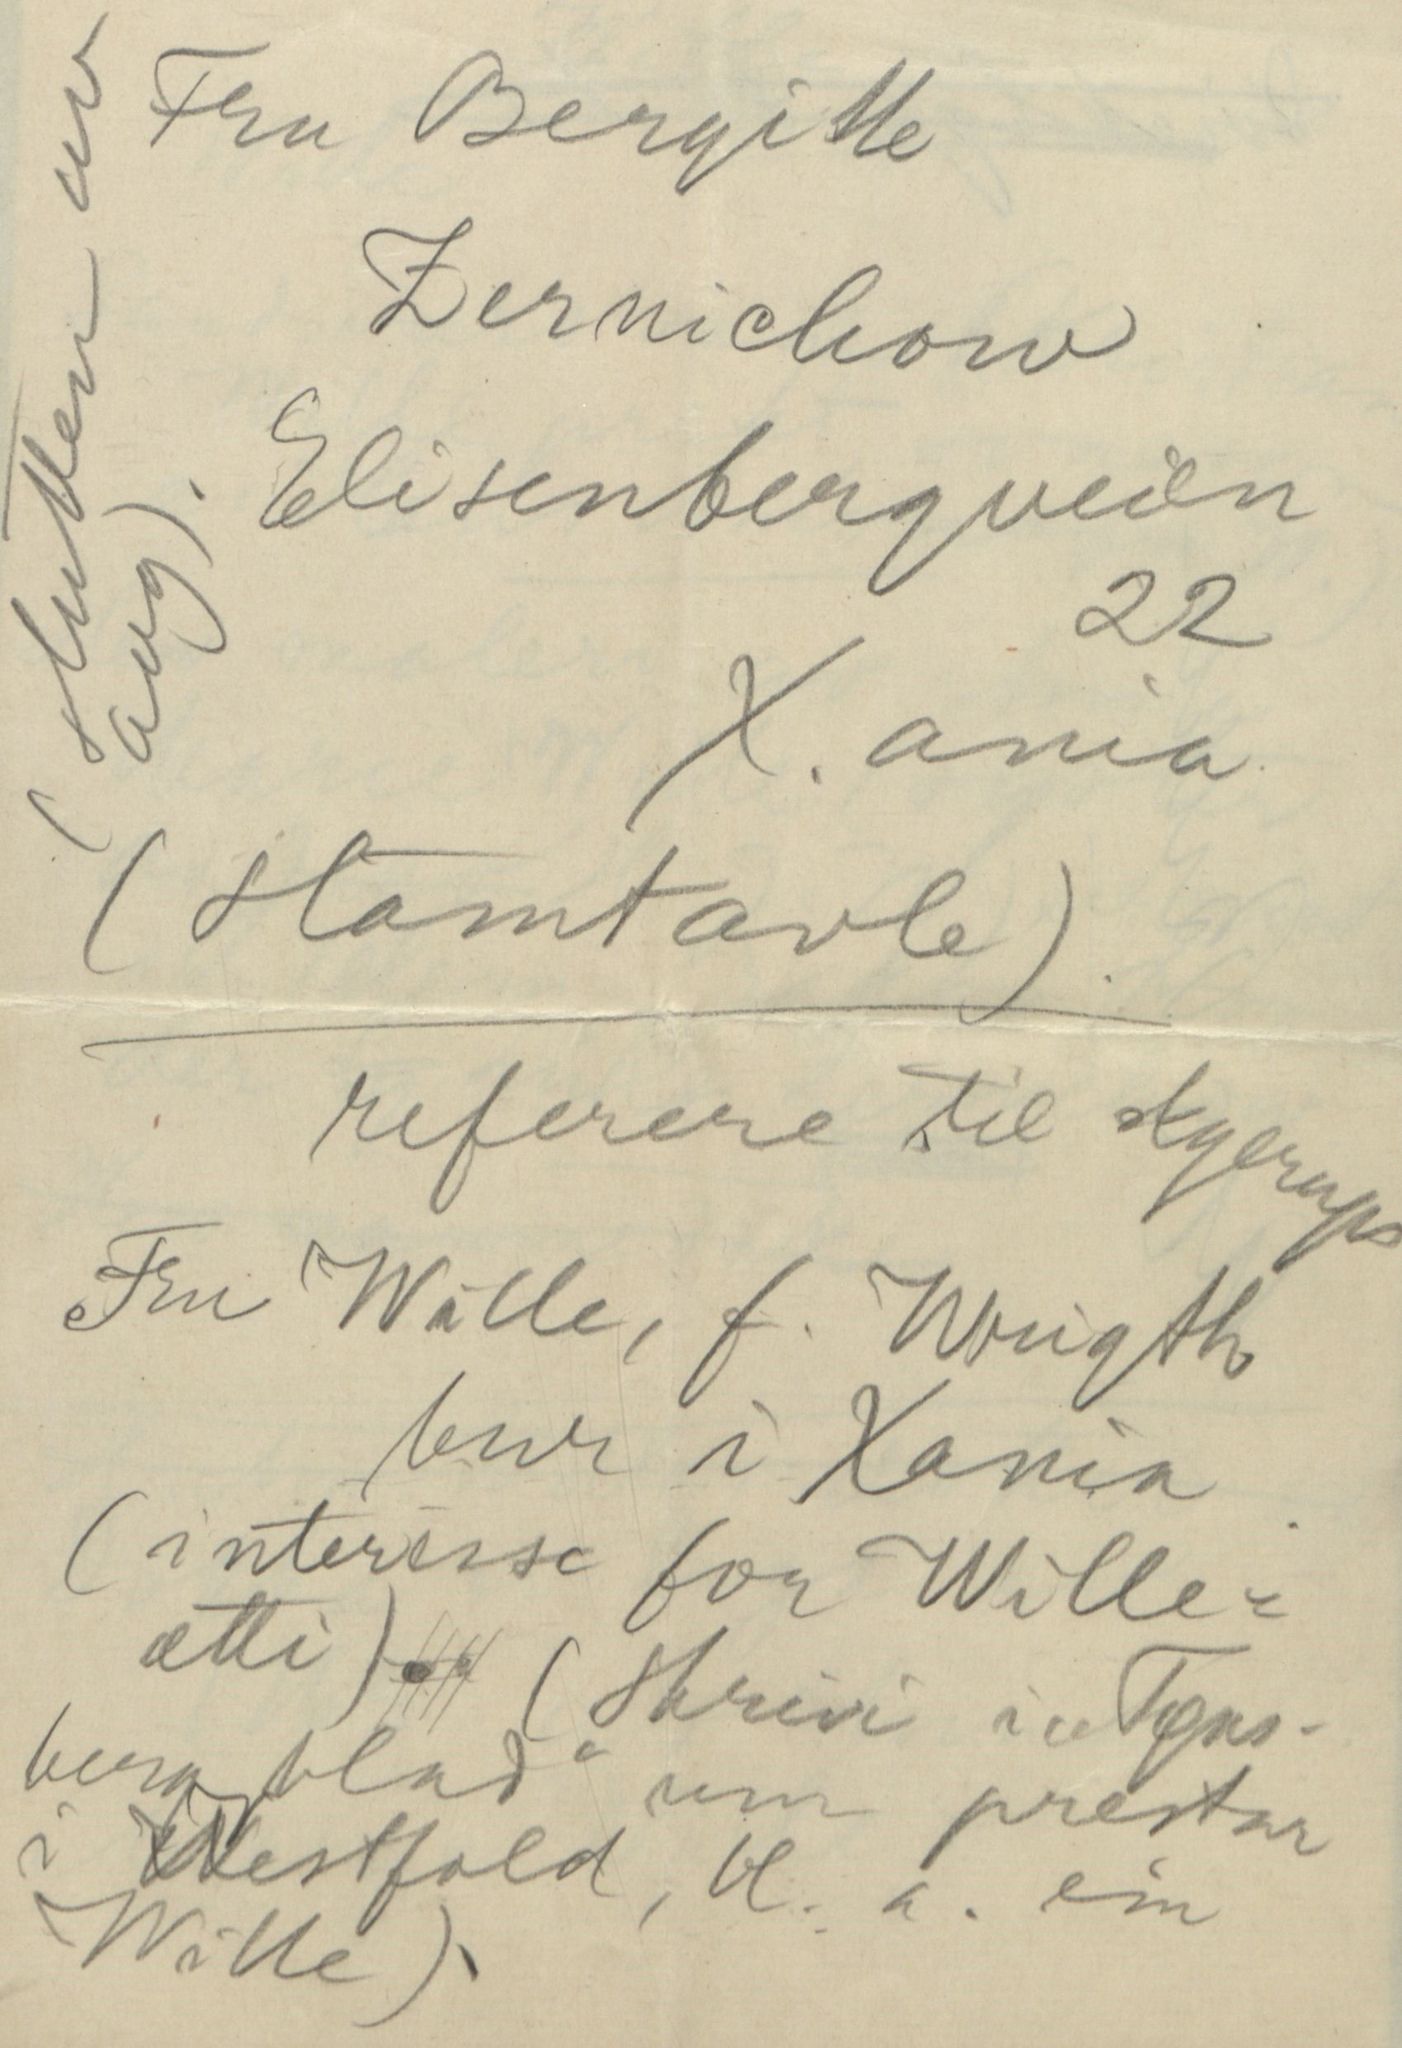 Fru Bergitte
Zernichow
Elisenbergveien
22
X.ania
(stamtavle).
(slutten av
aug).
referere til
Fru Wille, f. Wrigth
bur i Xania
(interesse for Wille-
ætti) (skrivi i „Tøns-
berg blad“ um prestar
i Vestfold, bl. a. ein
Wille).